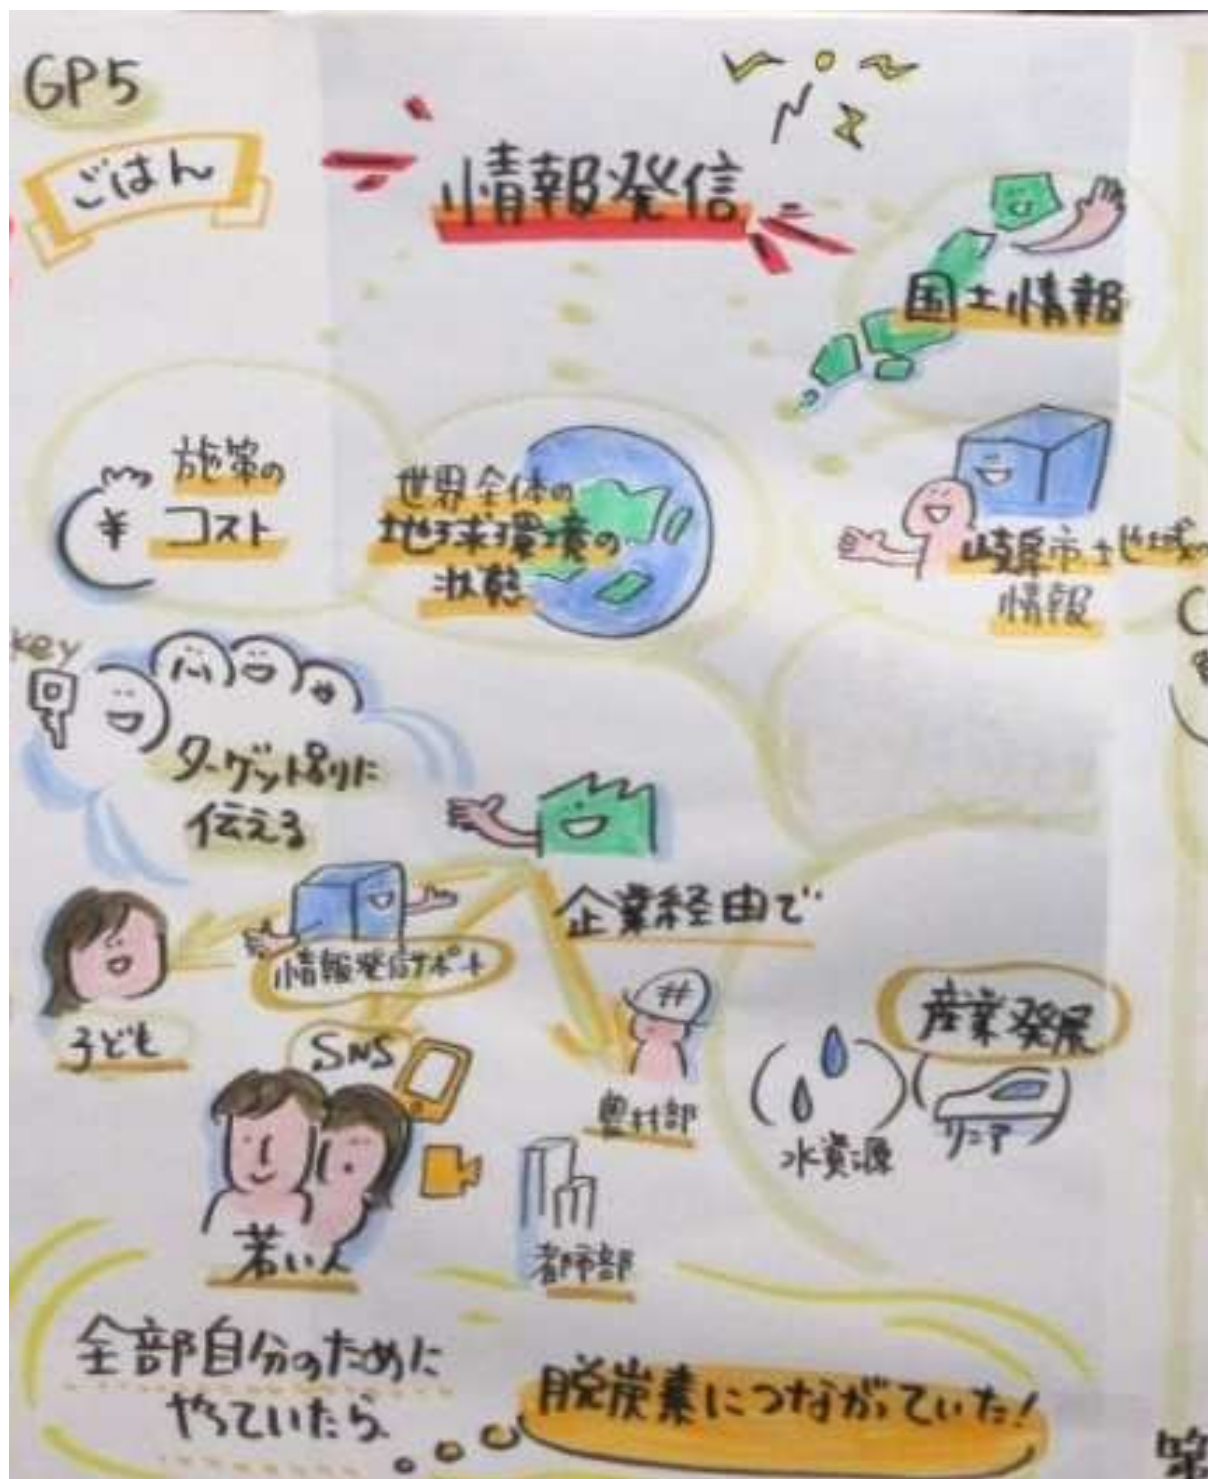 GP5
ごはん
情報発信
国土情報
施策の
コスト
¥
世界全体の
地球環境の
状態
岐阜市土地域の
情報
key
ターゲット別りに
伝える
企業経由で
情報発信サポート
子ども
SNS
農村部
産業発展
水資源
リニア
若い人
都市部
全部自分のために
やっていたら
脱炭素につながっていた!